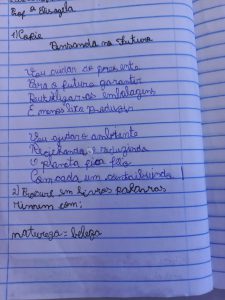 Prof ª Elisangela
1) Copie
Pensando no futuro
Vou cuidar do presente
Pra o futuro garantir
Reutilizar as embalagens
E menos lixo produzir
Vou ajudar o ambiente
Reciclando e reduzindo
O planeta fica feliz
Com cada um contribuindo
2) Procure em livros palavras
rimem com:
natureza = beleza